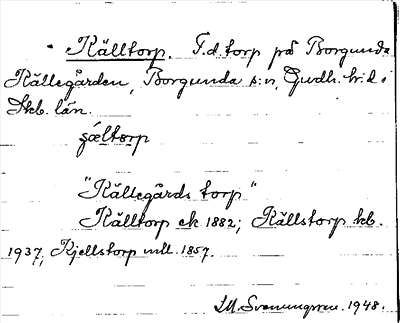 Källtorp. F.d. torp på Borgunda
Källegården, Borgunda s:n, Gudh. h:d i
Skb. län.
"Källegårds torp"
Källtorp ek 1882; Källstorp kb.
1937, Kjellstorp 1857.
1948.